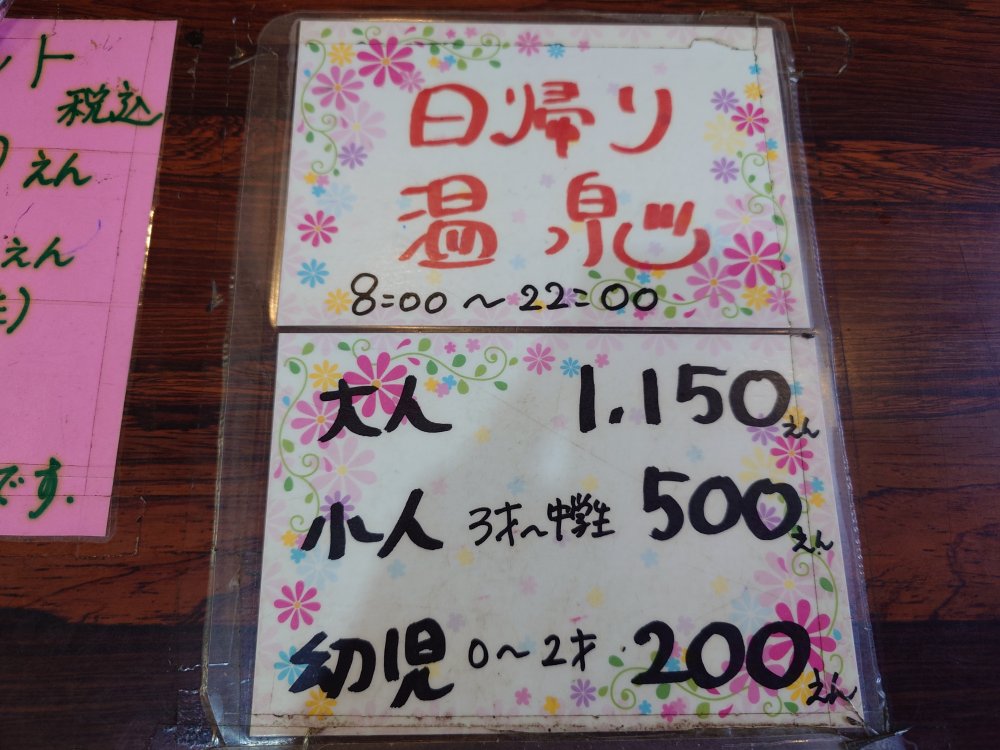 ト
税込
えん
えん
です.
日帰り
温泉
8:00 〜 22:00
大人 1,150えん
小人 3才〜中学生 500えん
幼児 0〜2才 200えん